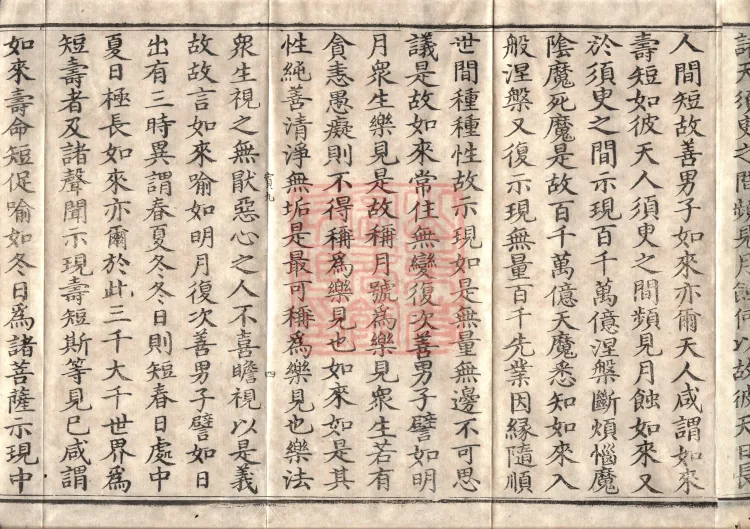 諸天須臾之間頻見月蝕何以故彼天日長
人間短故善男子如來亦爾天人咸謂如來
壽短如彼天人須臾之間頻見月蝕如來又
於須臾之間示現百千萬億涅槃斷煩惱魔
陰魔死魔是故百千萬億天魔悉知如來入
般涅槃又復示現無量百千先業因緣隨順
世間種種性故示現如是無量無邊不可思
議是故如來常住無變復次善男子譬如明
月衆生樂見是故稱月號爲樂見衆生若有
貪恚愚癡則不得稱爲樂見也如來如是其
性純善清淨無垢是最可稱爲樂見也樂法
賓九 四
衆生視之無猒惡心之人不喜瞻視以是義
故故言如來喻如明月復次善男子譬如日
出有三時異謂春夏冬冬日則短春日處中
夏日極長如來亦爾於此三千大千世界爲
短壽者及諸聲聞示現壽短斯等見已咸謂
如來壽命短促喻如冬日爲諸菩薩示現中